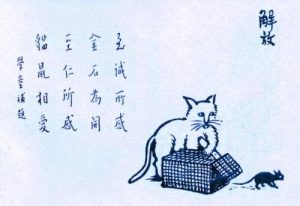 解放
至誠所感
金石為開
至仁所感
貓鼠相愛
學童補題